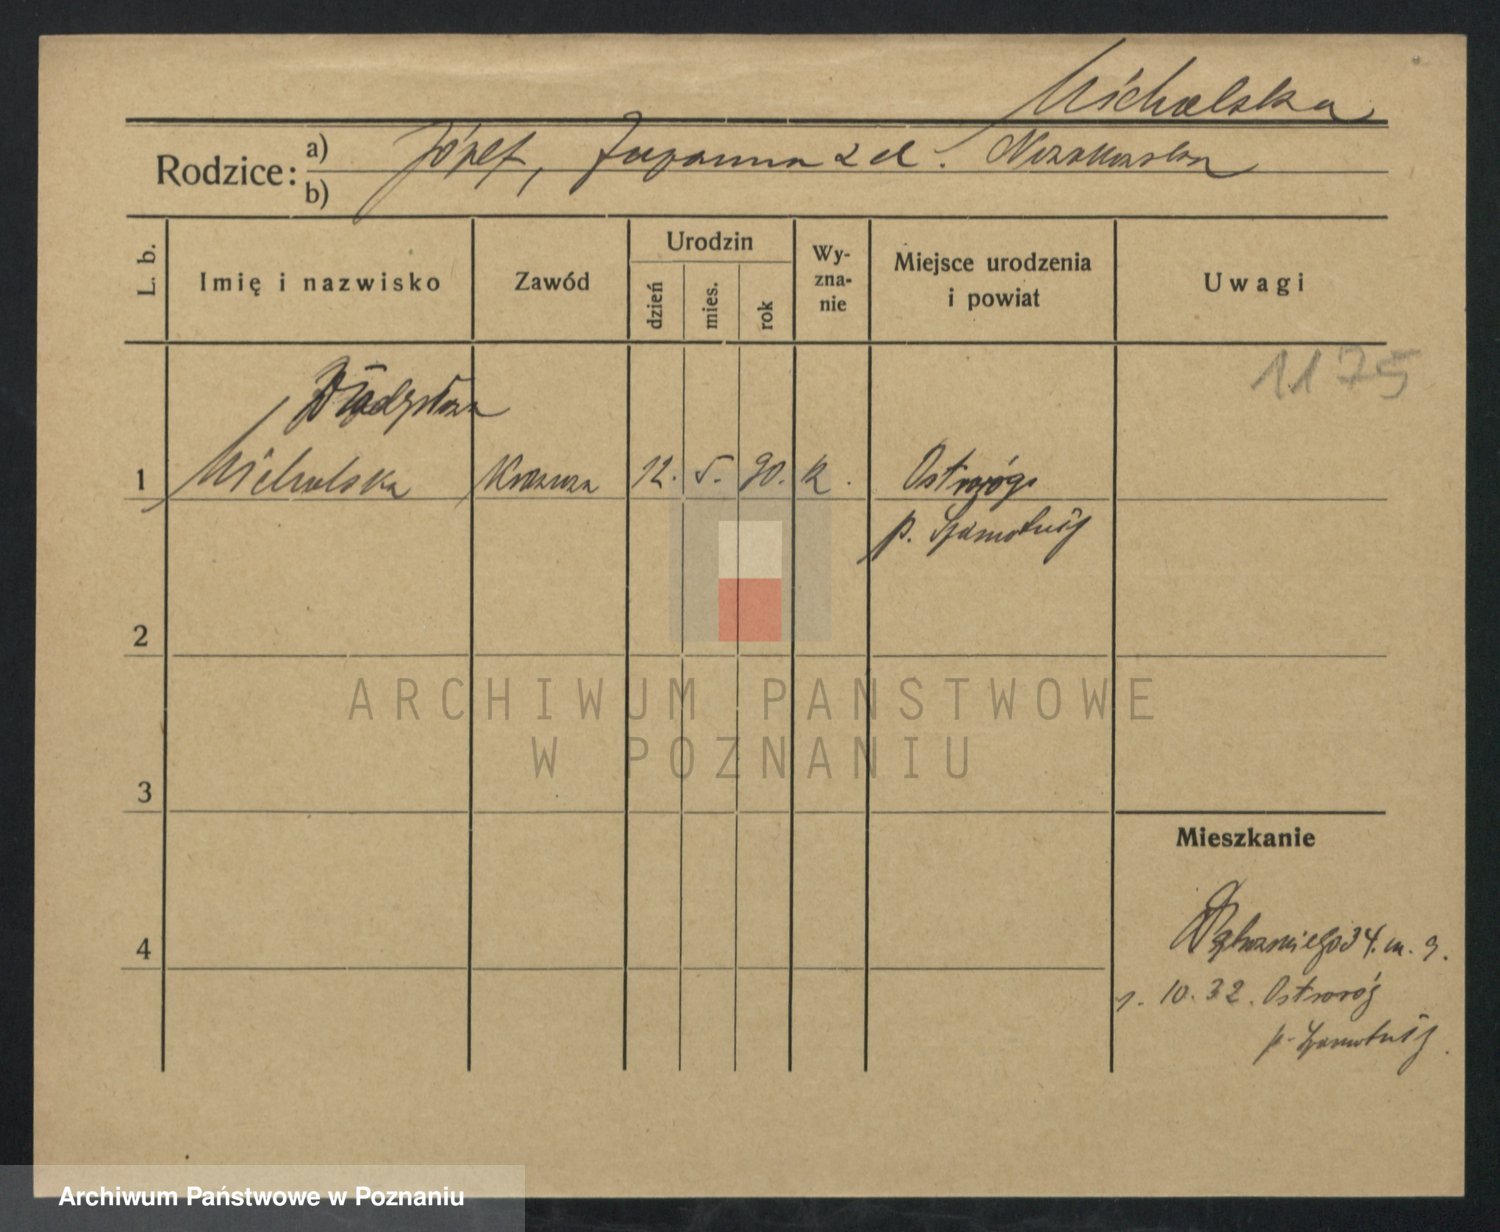 Michalska
Rodzice: a) Józef, Zuzanna z d.
b)
L. b.
Imię i nazwisko
Zawód
Urodzin
dzień
mies.
rok
Wy-
zna-
nie
Miejsce urodzenia
i powiat
Uwagi
1175
Władysława
1 Michalska Krawcowa 12. 5. 90. k. Ostroróg
p. Szamotuły
2
3
4
ARCHIWUM PAŃSTWOWE
W POZNANIU
Mieszkanie
34. m. 9.
1. 10. 32. Ostroróg
p. Szamotuły
Archiwum Państwowe w Poznaniu